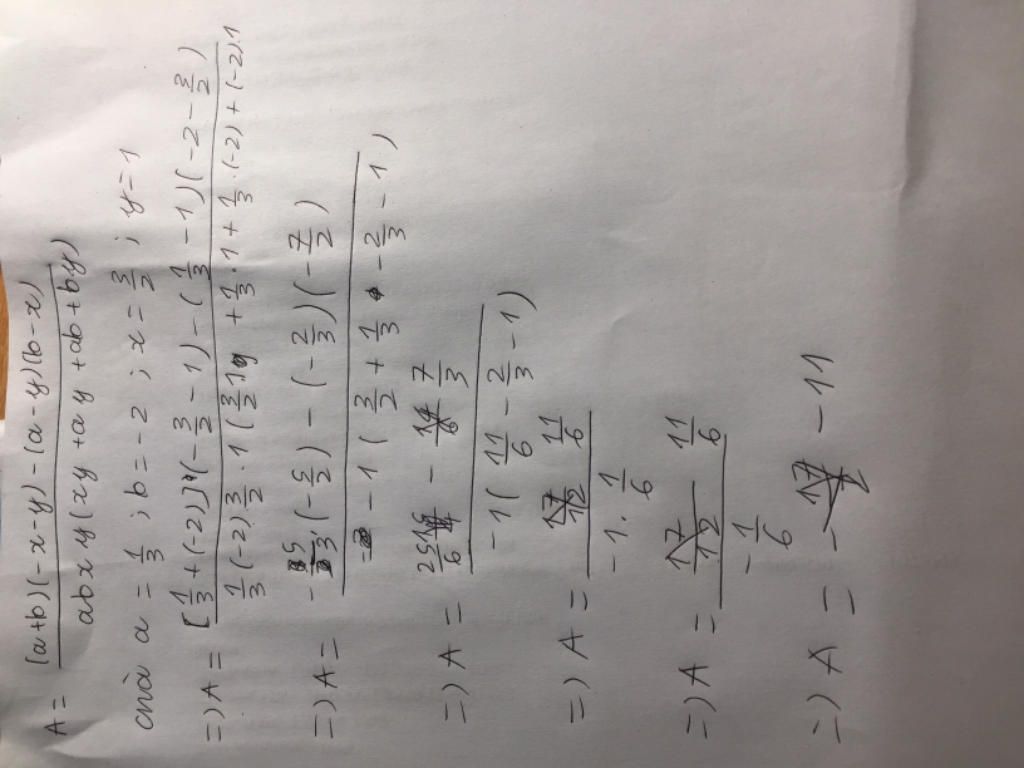 A = \frac{(a+b)(-x-y)-(a-y)(b-x)}{abxy(xy+ay+ab+by)}
a = \frac{1}{3} ; b = -2 ; x = \frac{3}{2} ; y = 1
=) A = \frac{[\frac{1}{3}+(-2)].(-\frac{3}{2}-1)-(\frac{1}{3}-1)(-2-\frac{3}{2})}{\frac{1}{3}.(-2).\frac{3}{2}.1(\frac{3}{2}.1+\frac{1}{3}.1+\frac{1}{3}.(-2)+(-2).1}
=) A = \frac{-\frac{5}{3}.(-\frac{5}{2})-(-\frac{2}{3})(-\frac{7}{2})}{-1(\frac{3}{2}+\frac{1}{3}-\frac{2}{3}-1)}
=) A = \frac{\frac{25}{6}-\frac{7}{3}}{-1(\frac{11}{6}-\frac{2}{3}-1)}
=) A = \frac{\frac{11}{6}}{-1.\frac{1}{6}}
=) A = \frac{\frac{11}{6}}{-\frac{1}{6}}
=) A = -11